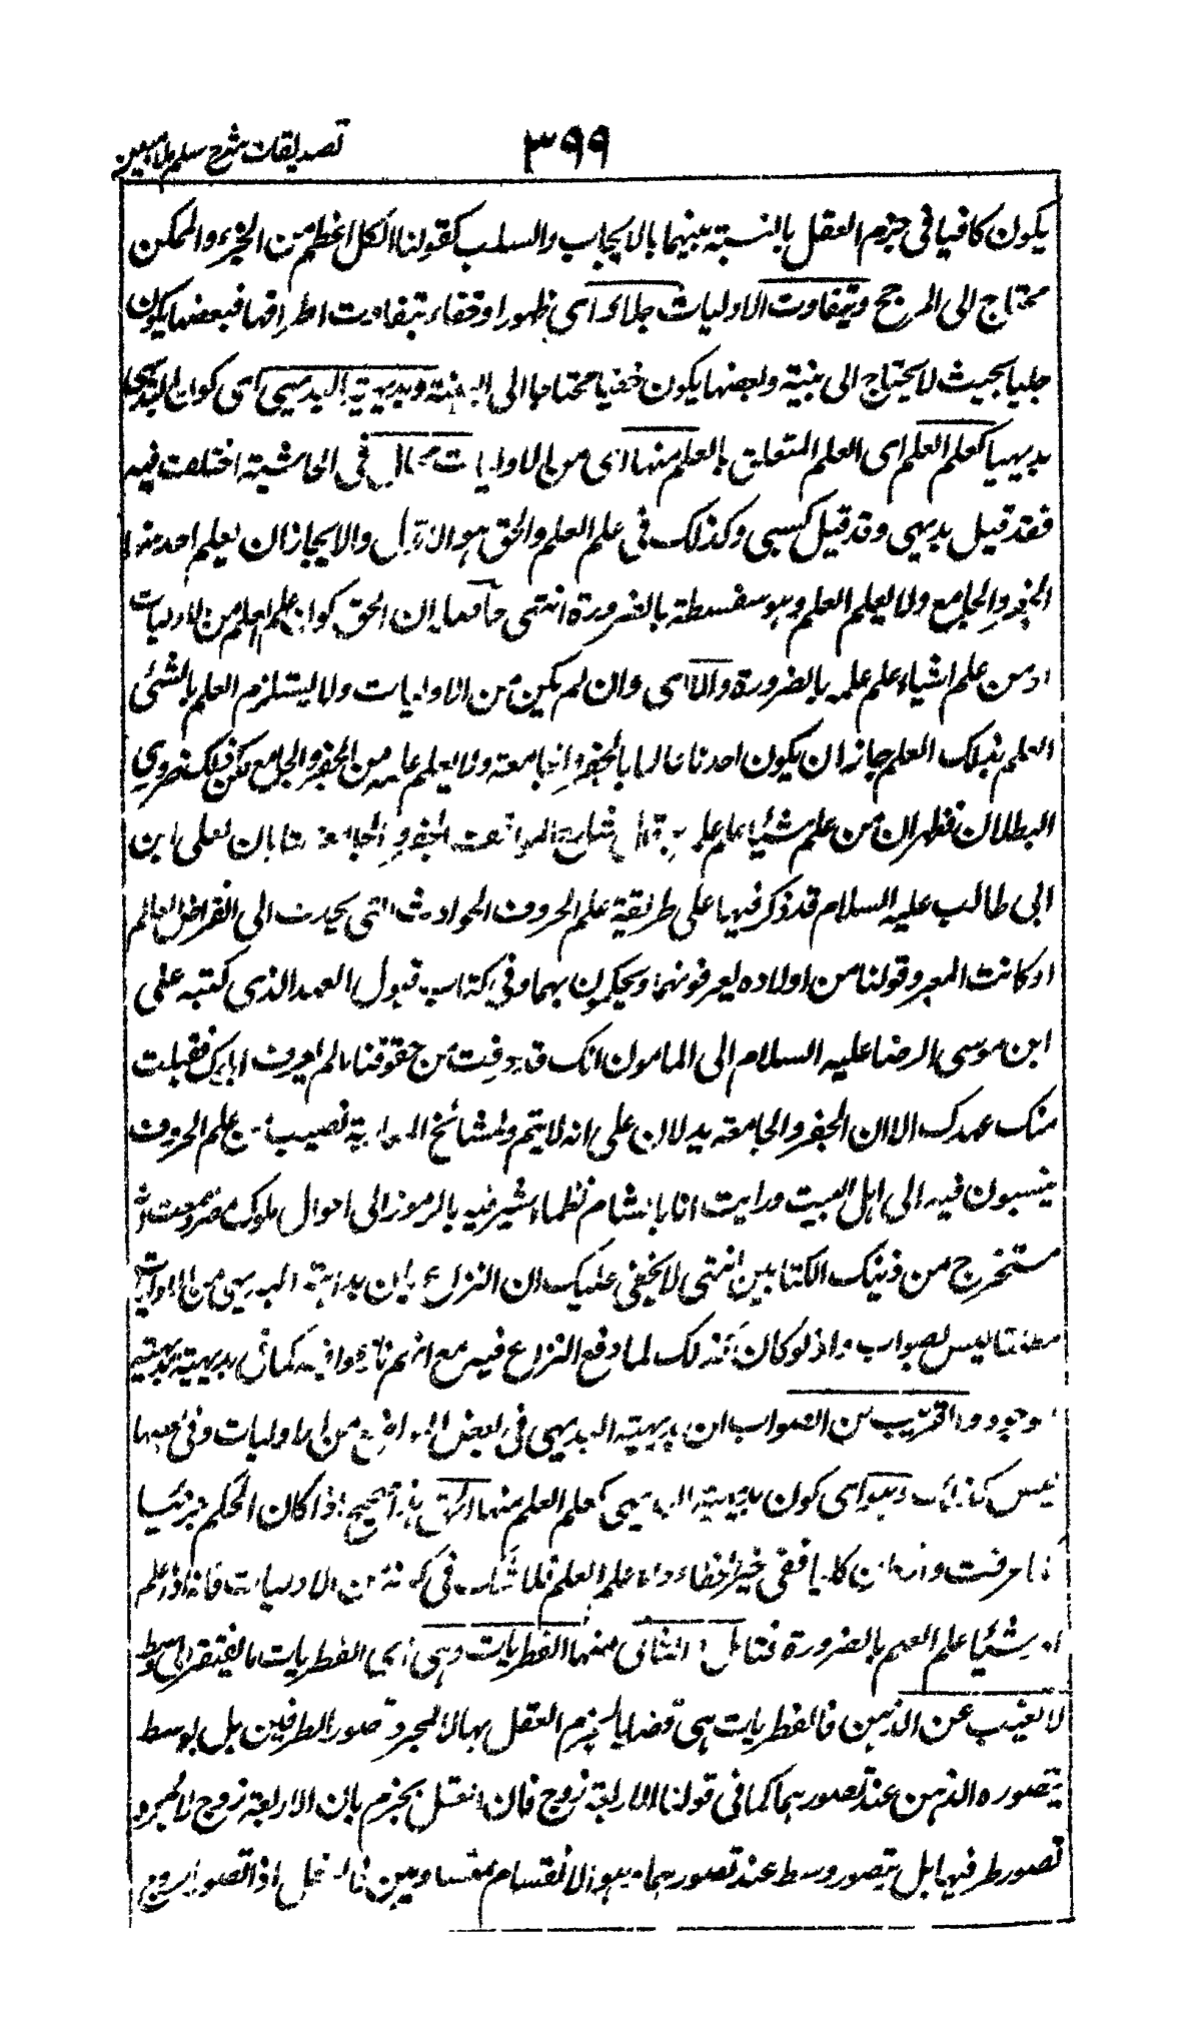 تصدیقات شرح سلم ملا مبین
۳۹۹
یکون کافیا فی جزم العقل بالنسبة بینهما بالایجاب والسلب کقولنا الکل اعظم من الجزء والممکن
محتاج الی المرجح وتتفاوت الاولیات جلاء ای ظهورا وخفاء بتفاوت اطرافها فبعضها یکون
جلیا بحیث لا یحتاج الی بینة وبعضها یکون خفیا محتاجا الی البینة وبدیهیة البدیهی ای کون البدیهی
بدیهیا کعلم العلم ای العلم المتعلق بالعلم منها ای من الاولیات قال فی الحاشیة اختلفت فیه
فقد قیل بدیهی وقد قیل کسبی وکذلک فی علم العلم والحق هو الاول والا یجاز ان یعلم احدنا
الجفر والجامع ولا یعلم العلم وهو سفسطة بالضرورة انتهی حاصله ان الحق کون علم العلم من الاولیات
اذ من علم اشیاء علم علمه بالضرورة والا ای وان لم یکن من الاولیات ولا یستلزم العلم بالشئ
العلم بذلک العلم جاز ان یکون احدنا عالما بالجفر والجامعة ولا یعلم علمه من الجفر والجامع لکن ذلک ضروری
البطلان فظهر ان من علم شیئا علم علمه قال شارح المواقف الجفر والجامعة کتابان لعلی ابن
ابی طالب علیه السلام قد ذکر فیها علی طریقة علم الحروف الحوادث التی یحدث الی انقراض العالم
وکانت المعروفون من اولاده یعرفونهما ویحکمون بهما وفی کتاب قبول العهد الذی کتبه علی
ابن موسی الرضا علیه السلام الی المامون انک قد عرفت من حقوقنا ما لم یعرف اباءک فقبلت
منک عهدک الا ان الجفر والجامعة یدلان علی انه لا یتم ولمشائخ المغاربة نصیب من علم الحروف
ینسبون فیه الی اهل البیت ورایت انا بالشام نظما اشیر فیه بالرموز الی احوال ملوک مصر وسمعت انه
مستخرج من ذینک الکتابین انتهی لا یخفی علیک ان النزاع بان بداهة البدیهی من الاولیات
مطلقا لیس بصواب واذ لو کان کذلک لما وقع النزاع فیه مع انهم نازعوا فیه کما فی بدیهیة بدیهیة
الوجود والقریب من الصواب ان بدیهیة البدیهی فی بعض المواضع من الاولیات وفی بعضها
لیس کذلک وهو ای کون بدیهیة البدیهی کعلم العلم منها الحق هذا صحیح اذا کان الحکم جزئیا
کما عرفت واما ان کان کلیا ففی حیز الخفاء واما علم العلم فلا شک فی کونه من الاولیات فانه اذا علم
احد شیئا علم العلم بالضرورة فتامل الثانی منها الفطریات وهی ای الفطریات ما یفتقر الی وسط
لا یغیب عن الذهن فالفطریات هی قضایا یجزم العقل بها لا لمجرد تصور الطرفین بل بوسط
یتصوره الذهن عند تصورهما کما فی قولنا الاربعة زوج فان العقل یجزم بان الاربعة زوج لا لمجرد
تصور طرفیها بل بتصور وسط عند تصورهما وهو الانقسام بمتساویین فالعقل اذا تصور الزوج